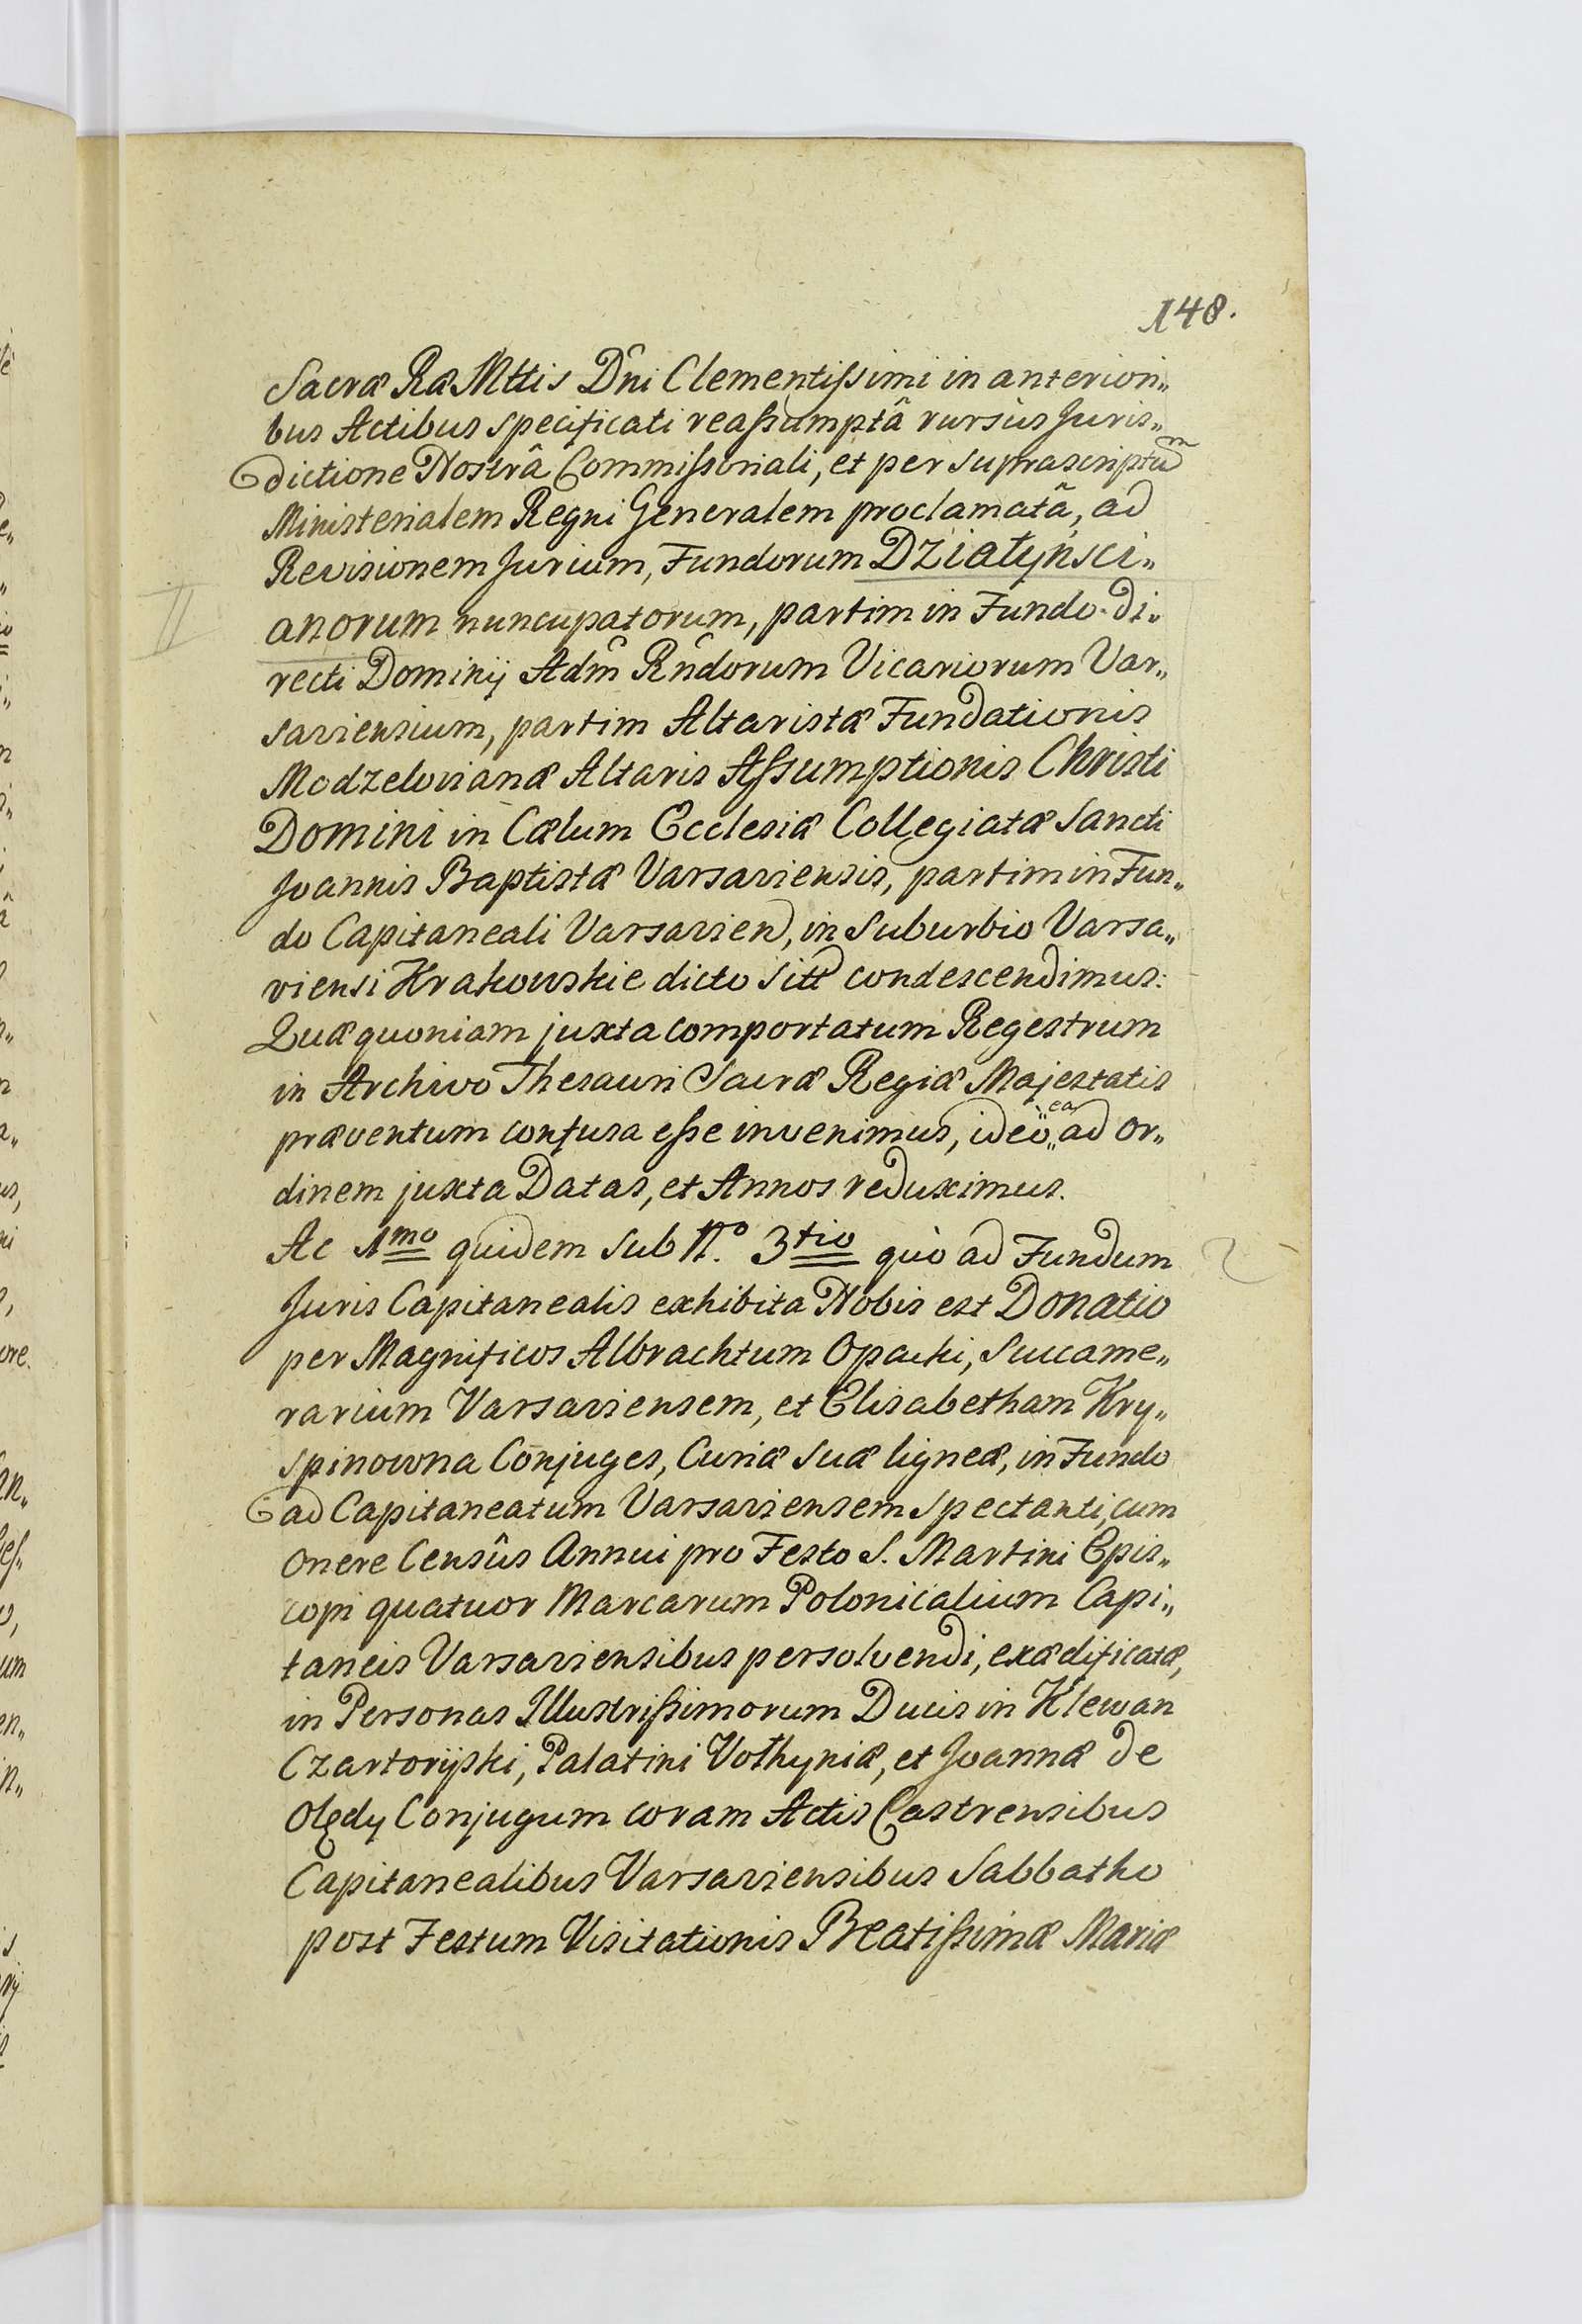 148.
Sacræ Ræ Mttis Dni Clementissimi in anteriori„
bus Actibus specificati reassumptâ rursùs Juris„
dictione Nostrâ Commissoriali, et per suprascriptum
Ministerialem Regni Generalem proclamatâ, ad
Revisionem Jurium, Fundorum Działyńsci„
II
anorum nuncupatorum, partim in Fundo di„
recti Dominij Adm Rndorum Vicariorum Var„
saviensium, partim Altaristæ Fundationis
Modzelovianæ Altaris Assumptionis Christi
Domini in Cælum Ecclesiæ Collegiatæ Sancti
Joannis Baptistæ Varsaviensis, partim in Fun„
do Capitaneali Varsavien, in Suburbio Varsa„
viensi Krakowskie dicto sitt condescendimus:
Quæ quoniam juxta comportatum Regestrum
in Archivo Thesauri Sacræ Regiæ Majestatis
præventum confusa esse invenimus, ideò „ea„ ad or„
dinem juxta Datas, et Annos reduximus.
Ac 1mo quidem sub N.o 3tio quò ad Fundum
2
Juris Capitanealis exhibita Nobis est Donatio
per Magnificos Albrachtum Opacki, Succame„
rarium Varsaviensem, et Elisabetham Kry„
spinowna Conjuges, Curiæ suæ ligneæ, in Fundo
ad Capitaneatum Varsaviensem spectanti, cum
Onere Censûs Annui pro Festo S. Martini Epis„
copi quatuor Marcarum Polonicalium Capi„
taneis Varsaviensibus persolvendi, exædificatæ,
in Personas Illustrissimorum Ducis in Klewan
Czartorijski, Palatini Vołhyniæ, et Joannæ de
Olędy Conjugum coram Actis Castrensibus
Capitanealibus Varsaviensibus Sabbatho
post Festum Visitationis Beatissimæ Mariæ